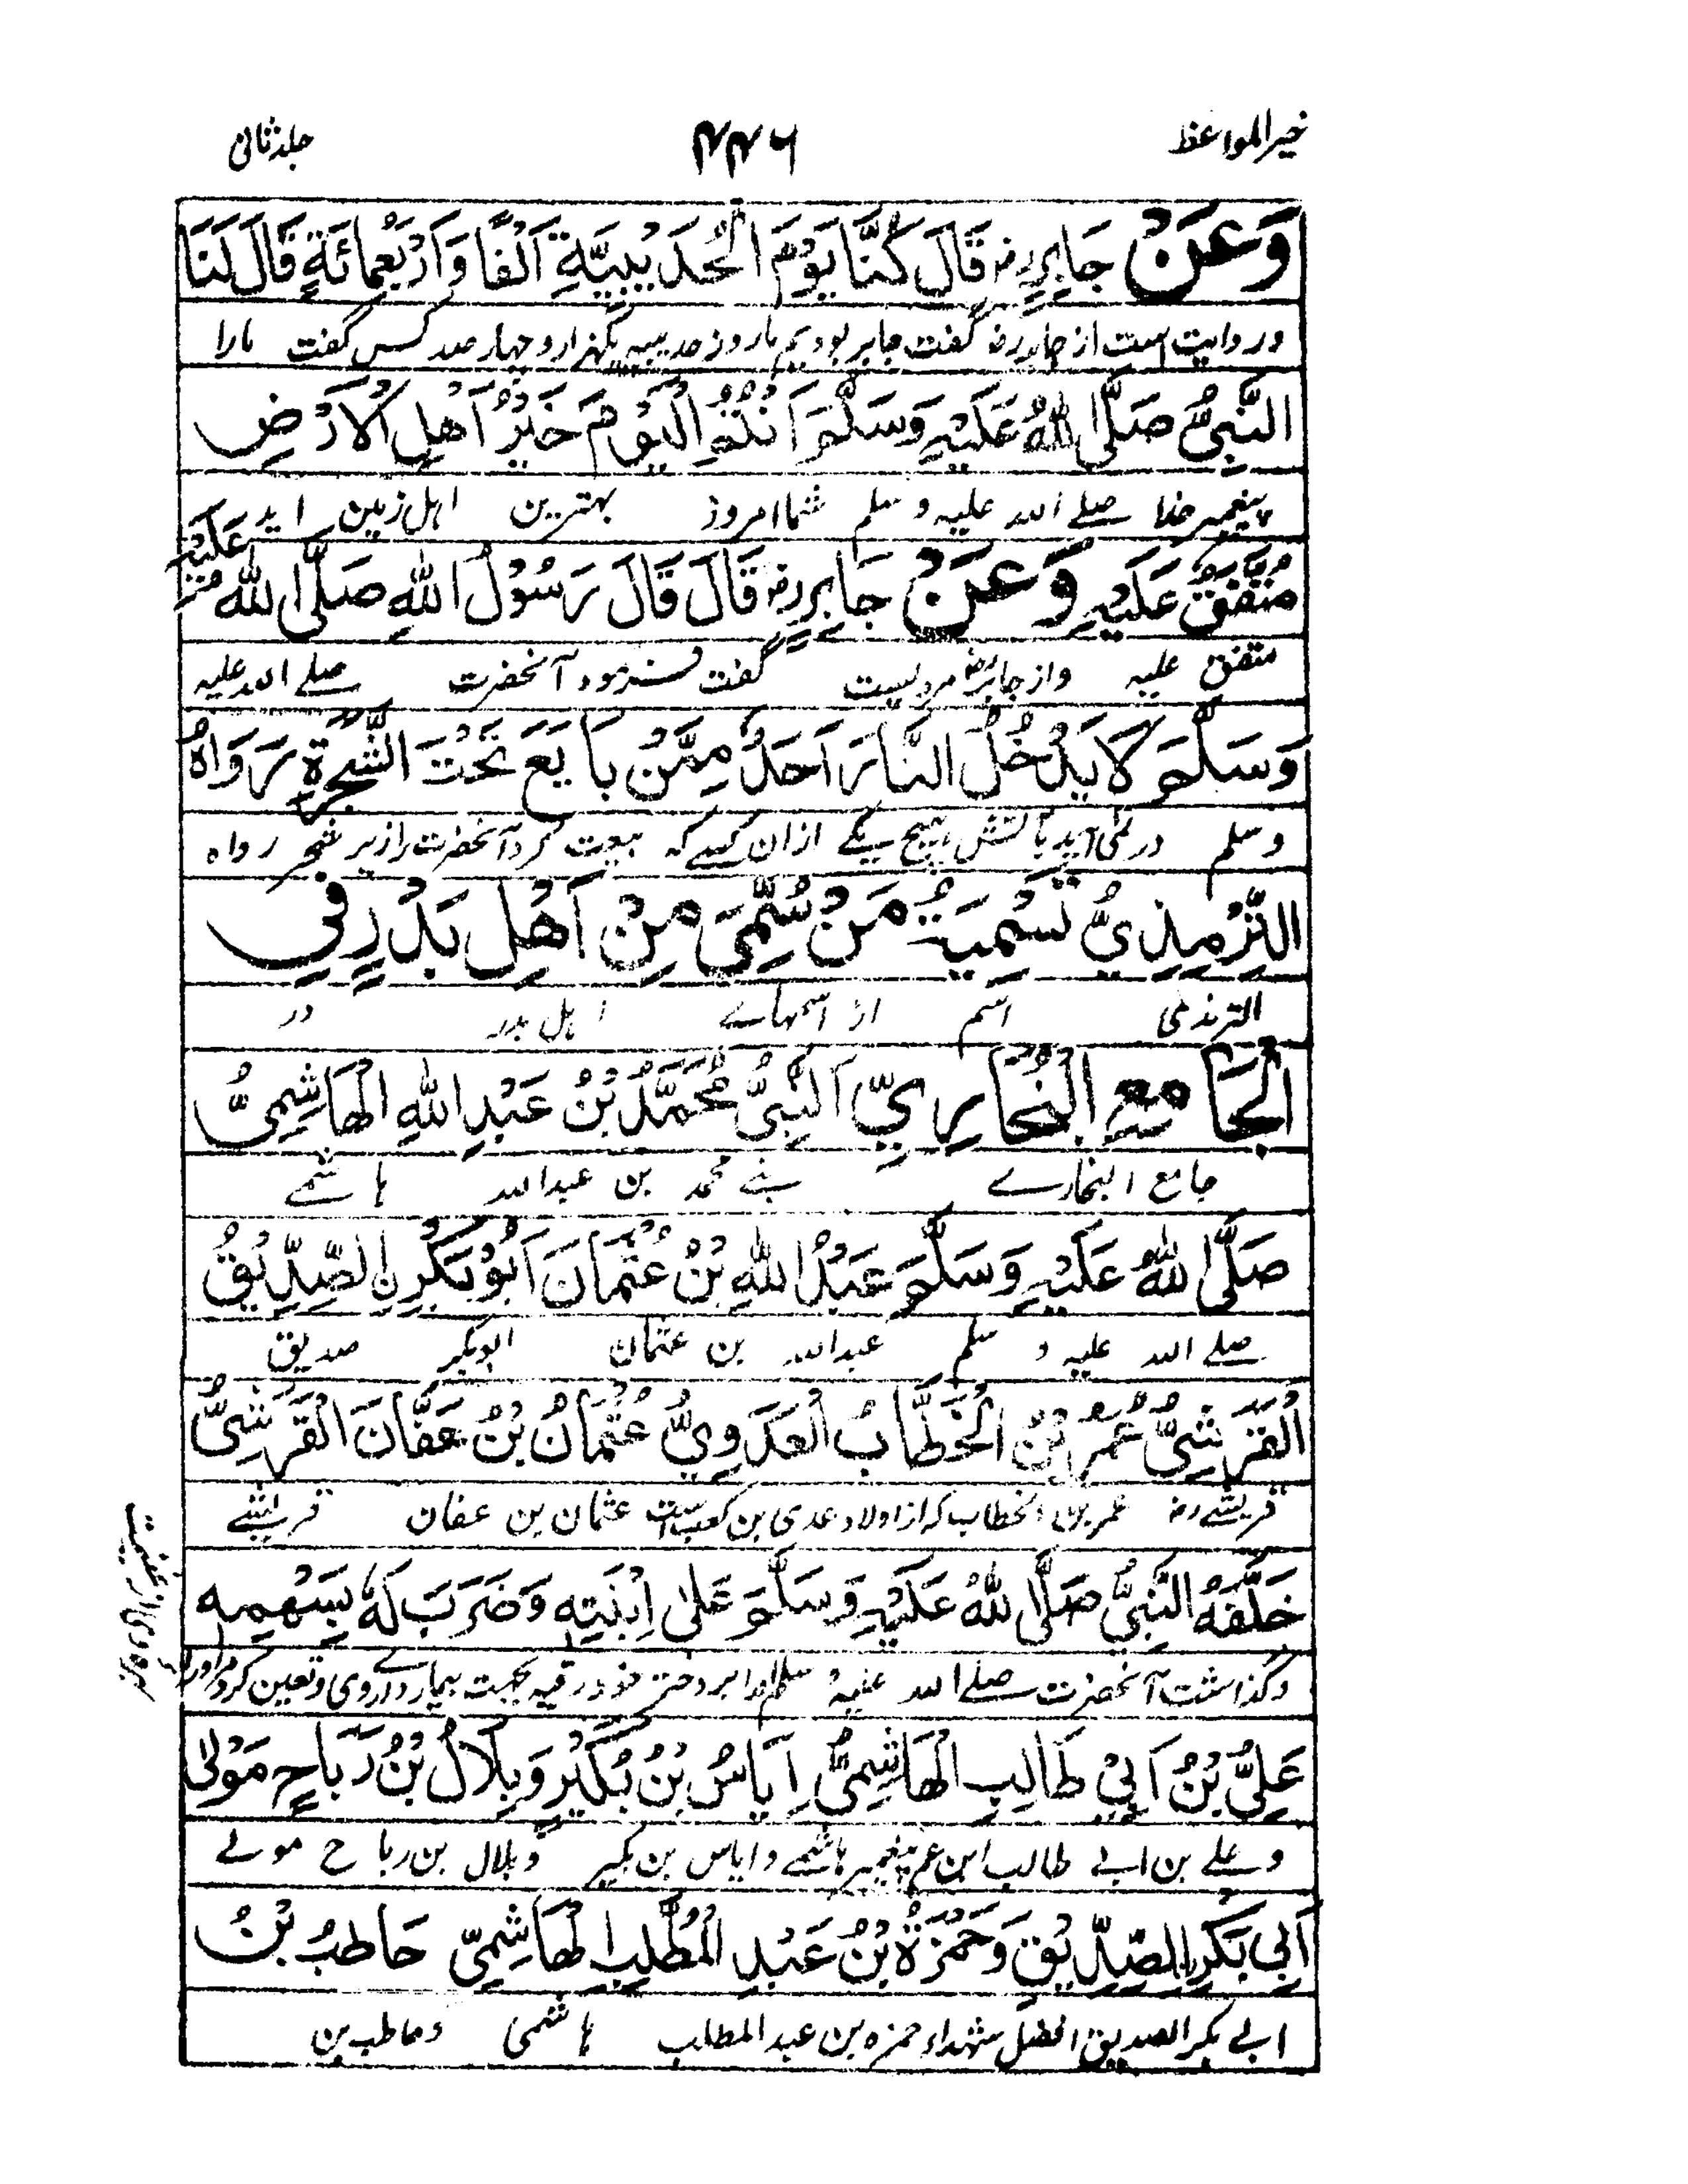 خیر المواعظ
۴۴۶
جلد ثانی
وَعَنْ جَابِرٍ رض قَالَ كُنَّا يَوْمَ الْحُدَيْبِيَّةِ اَلْفًا وَاَرْبَعُمِائَةٍ قَالَ لَنَا
و روایت است از جابر رض گفت جابر بودیم ما روز حدیبیه یکهزار و چهار صد کس گفت مارا
النَّبِىُّ صَلَّى اللهُ عَلَيْهِ وَسَلَّمَ اَنْتُمُ الْيَوْمَ خَيْرُ اَهْلِ الْاَرْضِ
پیغمبر خدا صلے الله علیه و سلم شما امروز بهترین اهل زمین اید
مُتَّفَقٌ عَلَيْهِ وَعَنْ جَابِرٍ رض قَالَ قَالَ رَسُوْلُ اللهِ صَلَّى اللهُ عَلَيْهِ
متفق علیه و از جابر رض مرویست گفت فرمود آنحضرت صلے الله علیه
وَسَلَّمَ لَا يَدْخُلُ النَّارَ اَحَدٌ مِمَّنْ بَايَعَ تَحْتَ الشَّجَرَةِ رَوَاهُ
وسلم در نمی آید بآتش هیچ یکے ازان کسے که بیعت کرد آنحضرت را زیر شجر رواه
التِّرْمِذِىُّ تَسْمِيَةُ مَنْ سُمِّىَ مِنْ اَهْلِ بَدْرٍ فِى
الترمذی اسم از اسمهاے اهل بدر در
الْجَامِعِ الْبُخَارِيِّ اَلنَّبِىُّ مُحَمَّدُ بْنُ عَبْدِ اللهِ الْهَاشِمِىُّ
جامع البخارے بنے محمد بن عبدالله هاشمے
صَلَّى اللهُ عَلَيْهِ وَسَلَّمَ عَبْدُ اللهِ بْنُ عُثْمَانَ اَبُوْبَكْرِنِ الصِّدِّيْقُ
صلے الله علیه و سلم عبدالله بن عثمان ابوبکر صدیق
الْقُرَشِىُّ عُمَرُ بْنُ الْخَطَّابِ الْعَدَوِيُّ عُثْمَانُ بْنُ عَفَّانَ الْقُرَشِىُّ
قریشے رض عمر بن الخطاب که از اولاد عدی بن کعب است عثمان بن عفان قریشے
خَلَّفَهُ النَّبِىُّ صَلَّى اللهُ عَلَيْهِ وَسَلَّمَ عَلىٰ اِبْنَتِهٖ وَضَرَبَ لَهُ بِسَهْمِهٖ
وگذاشت آنحضرت صلے الله علیه سلم اورا بر دختر خود رقیه بجهت بیمار داری وی و تعین کرد مر اورا
عَلِىُّ بْنُ اَبِيْ طَالِبِ الْهَاشِمِىُّ اِيَاسُ بْنُ بُكَيْرٍ وَبِلَالُ بْنُ رَبَاحٍ مَوْلىٰ
و علے بن ابے طالب ابن عم پیغمبر هاشمے و ایاس بن بکیر و بلال بن رباح مولے
اَبِى بَكْرِ الصِّدِّيْقِ وَحَمْزَةُ بْنُ عَبْدِ الْمُطَّلِبِ الْهَاشِمِىِّ حَاطِبُ بْنُ
ابے بکر الصدیق افضل شهداء حمزه بن عبد المطلب هاشمی و حاطب بن